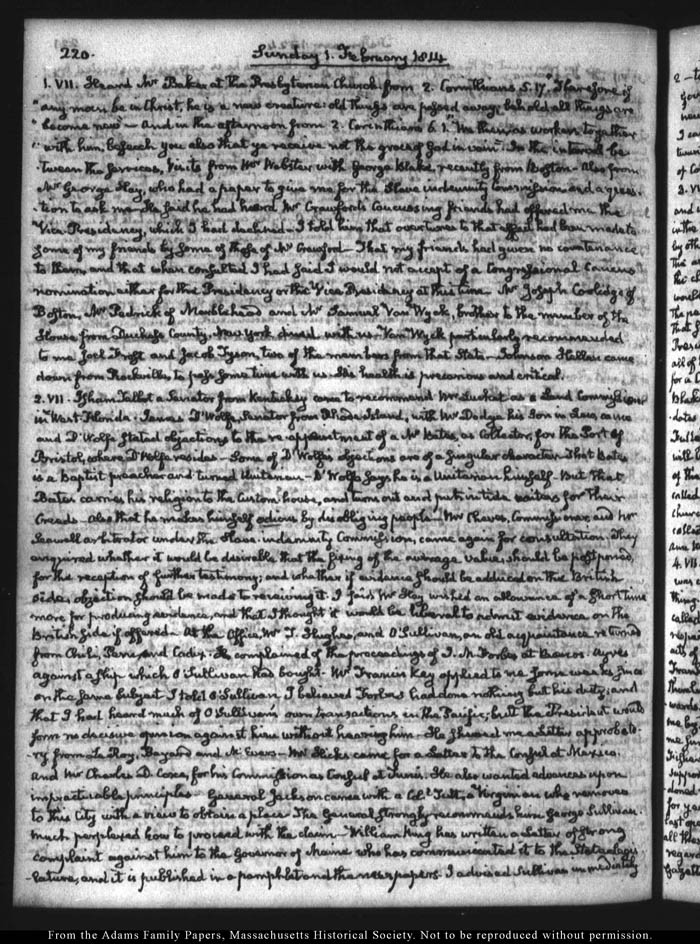 220.
Sunday 1. February 1824
1. VII. Heard Mr Baker at the Presbyterian Church from 2. Corinthians 5.17. "Therefore if
"any man be in Christ, he is a new creature: old things are passed away; behold all things are
"become new" — And in the afternoon from 2. Corinthians 6.1. "We then as workers together
"with him, beseech you also that ye receive not the grace of God in vain." In the interval be-
tween the services, Visits from Mr Webster with George Blake, recently from Boston. Also from
Mr George Hay, who had a paper to give me for the Slave indemnity Commission and a ques-
tion to ask me. He said he had heard Mr Crawford's Caucussing friends had offered me the
Vice-Presidency, which I had declined — I told him that overtures to that effect had been made to
some of my friends by some of those of Mr Crawford — That my friends had given no countenance
to them, and that when consulted I had said I would not accept of a Congressional Caucus
nomination either for the Presidency or the Vice Presidency at this time. Mr Joseph Coolidge of
Boston, Mr Pedrick of Marblehead and Mr Samuel Van Wyck, brother to the member of the
House from Duchess County, New York dined with us. Van Wyck particularly recommended
to me Joel Frost and Jacob Tyson, two of the members from that State. Johnson Hellen came
down from Rockville to pass some time with us. His health is precarious and critical.
2. VII. Isham Talbot a Senator from Kentucky came to recommend Mr Luckett as a Land Commissioner
in West-Florida. James D'Wolfe, Senator from Rhode Island, with Mr Dodge his Son in Law, came
and D'Wolfe stated objections to the re-appointment of a Mr Bates, as Collector, for the Port of
Bristol, where D'Wolfe resides — Some of D'Wolfe's objections are of a singular character. That Bates
is a Baptist preacher and turned Unitarian — D'Wolfe says he is a Unitarian himself. But that
Bates carries his religion to the Custom house, and turns out and puts in tide waiters for their
Creeds. Also that he makes himself odious by disobliging people. Mr Cheves, Commissioner, and Mr
Seawell arbitrator under the Slave-indemnity Commission, came again for consultation. They
enquired whether it would be desirable that the fixing of the average value, should be postponed,
for the reception of further testimony; and whether if evidence should be adduced on the British
side, objection should be made to receiving it. I said Mr Hay wished an allowance of a short time
more for producing evidence, and that I thought it would be liberal to admit evidence on the
British side if offered. At the Office, Mr J. Hughes, and O'Sullivan, an old acquaintance returned
from Chili, Peru and Cadiz. He complained of the proceedings of J. M. Forbes at Buenos-Ayres
against a ship which O'Sullivan had bought. Mr Francis Key applied to me some weeks since
on the same subject. I told O'Sullivan I believed Forbes had done nothing but his duty; and
that I had heard much of O'Sullivan's own transactions in the Pacific; but the President would
form no decisive opinion against him without hearing him. He shewed me a Letter approbato-
ry from Le Roy, Bayard and McEvers. Mr Slicks came for a Letter to the Consul at Mexico
and Mr Charles D. Coxe, for his Commission as Consul at Tunis. He also wanted advances upon
impracticable principles. General Jackson came with a Coll. Tutt, a Virginian who removes
to this City with a view to obtain a place. The General strongly recommends him. George Sullivan
much perplexed how to proceed with the claim. William King has written a Letter of strong
complaint against him to the Governor of Maine who has communicated it to the State Legis-
lature, and it is published in a pamphlet and the newspapers. I advised Sullivan immediately
From the Adams Family Papers, Massachusetts Historical Society. Not to be reproduced without permission.